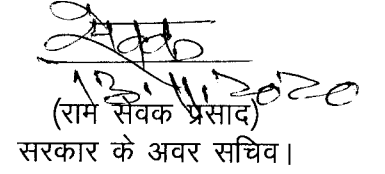 13.11.2020
(राम सेवक प्रसाद)
सरकार के अवर सचिव।